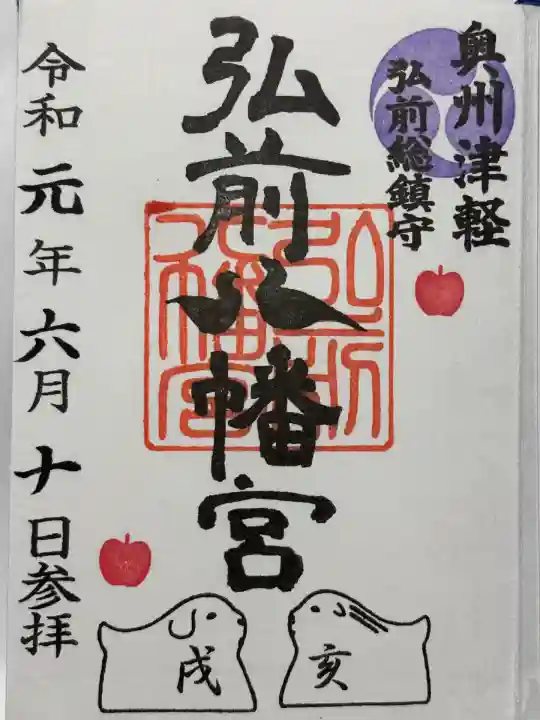 奥州津軽
弘前総鎮守
弘前八幡宮
弘前
八幡宮
令和元年六月十日参拝
亥
戌